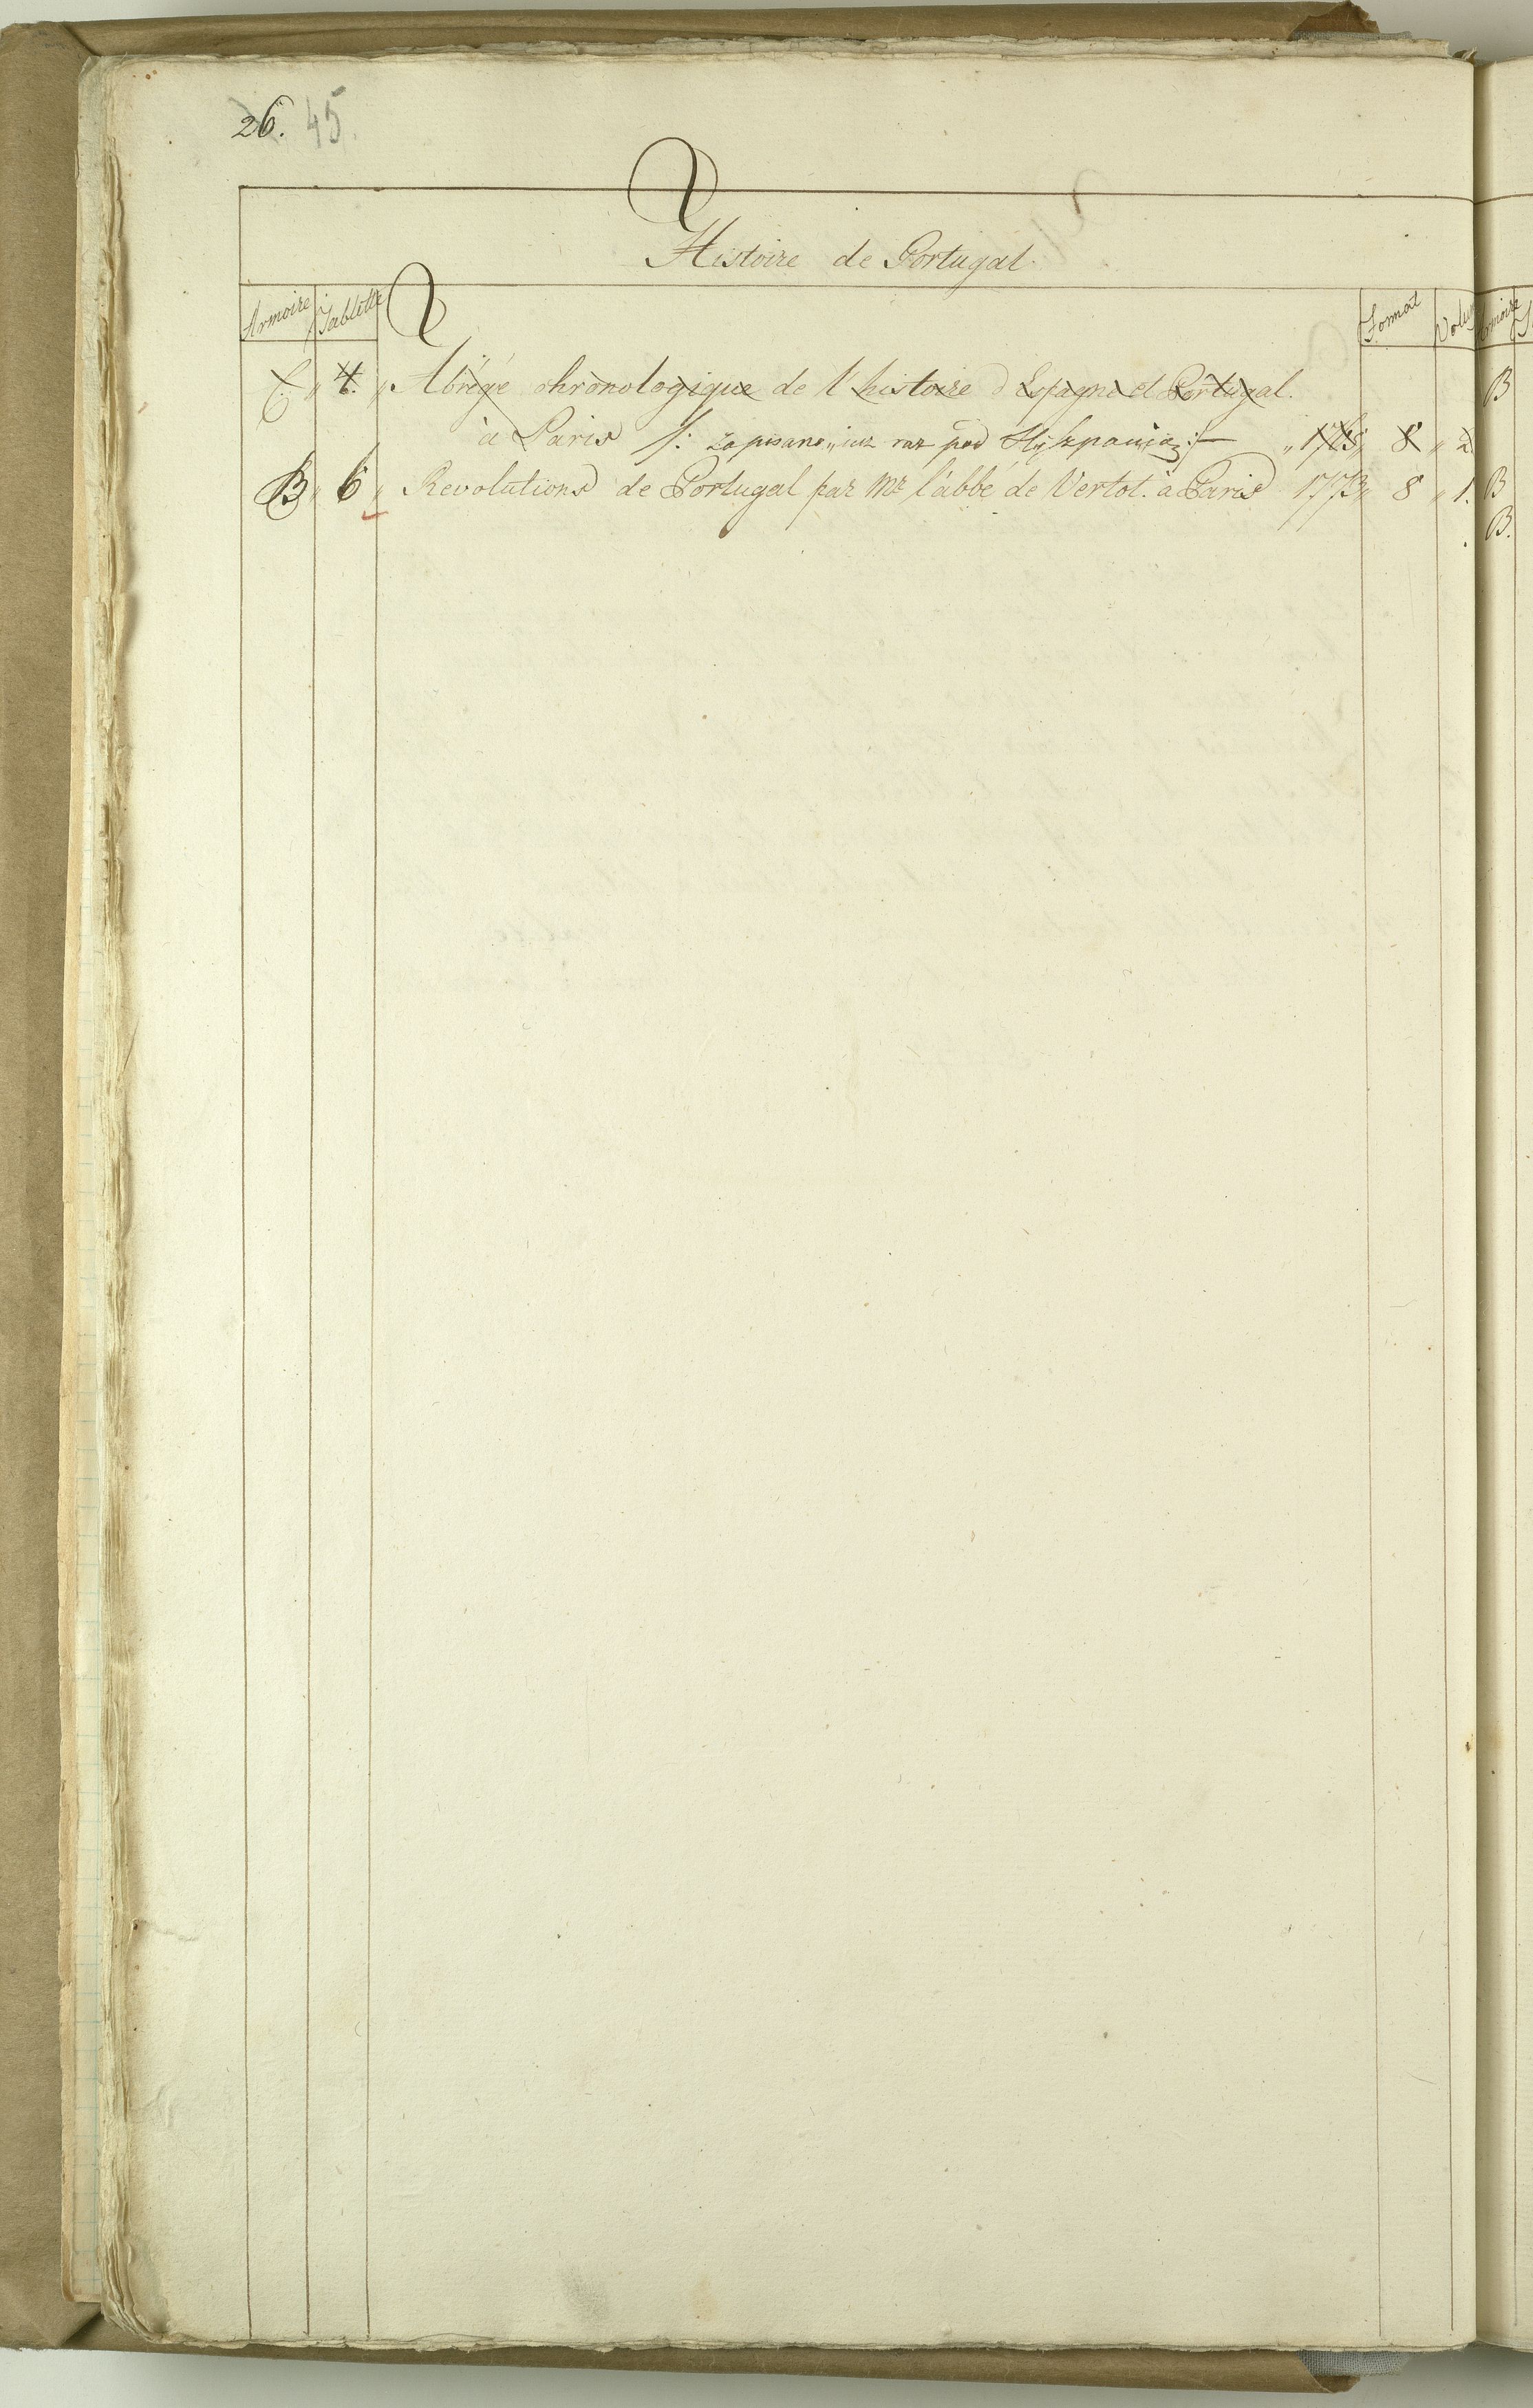 26. 45.
Histoire de Portugal.
Armoire Tablette Format Volum
C. „ 4. „ Abrégé chronologique de l'histoire d'Espagne et Portugal.
à Paris /: zapisane „ iuz raz pod Hiszpanią :/ — „ 8 „ 2
B „ 6 „ Revolutions de Portugal par Mr l'abbé de Vertot. à Paris 1773 „ 8 „ 1.
Armoire
B
B
B.